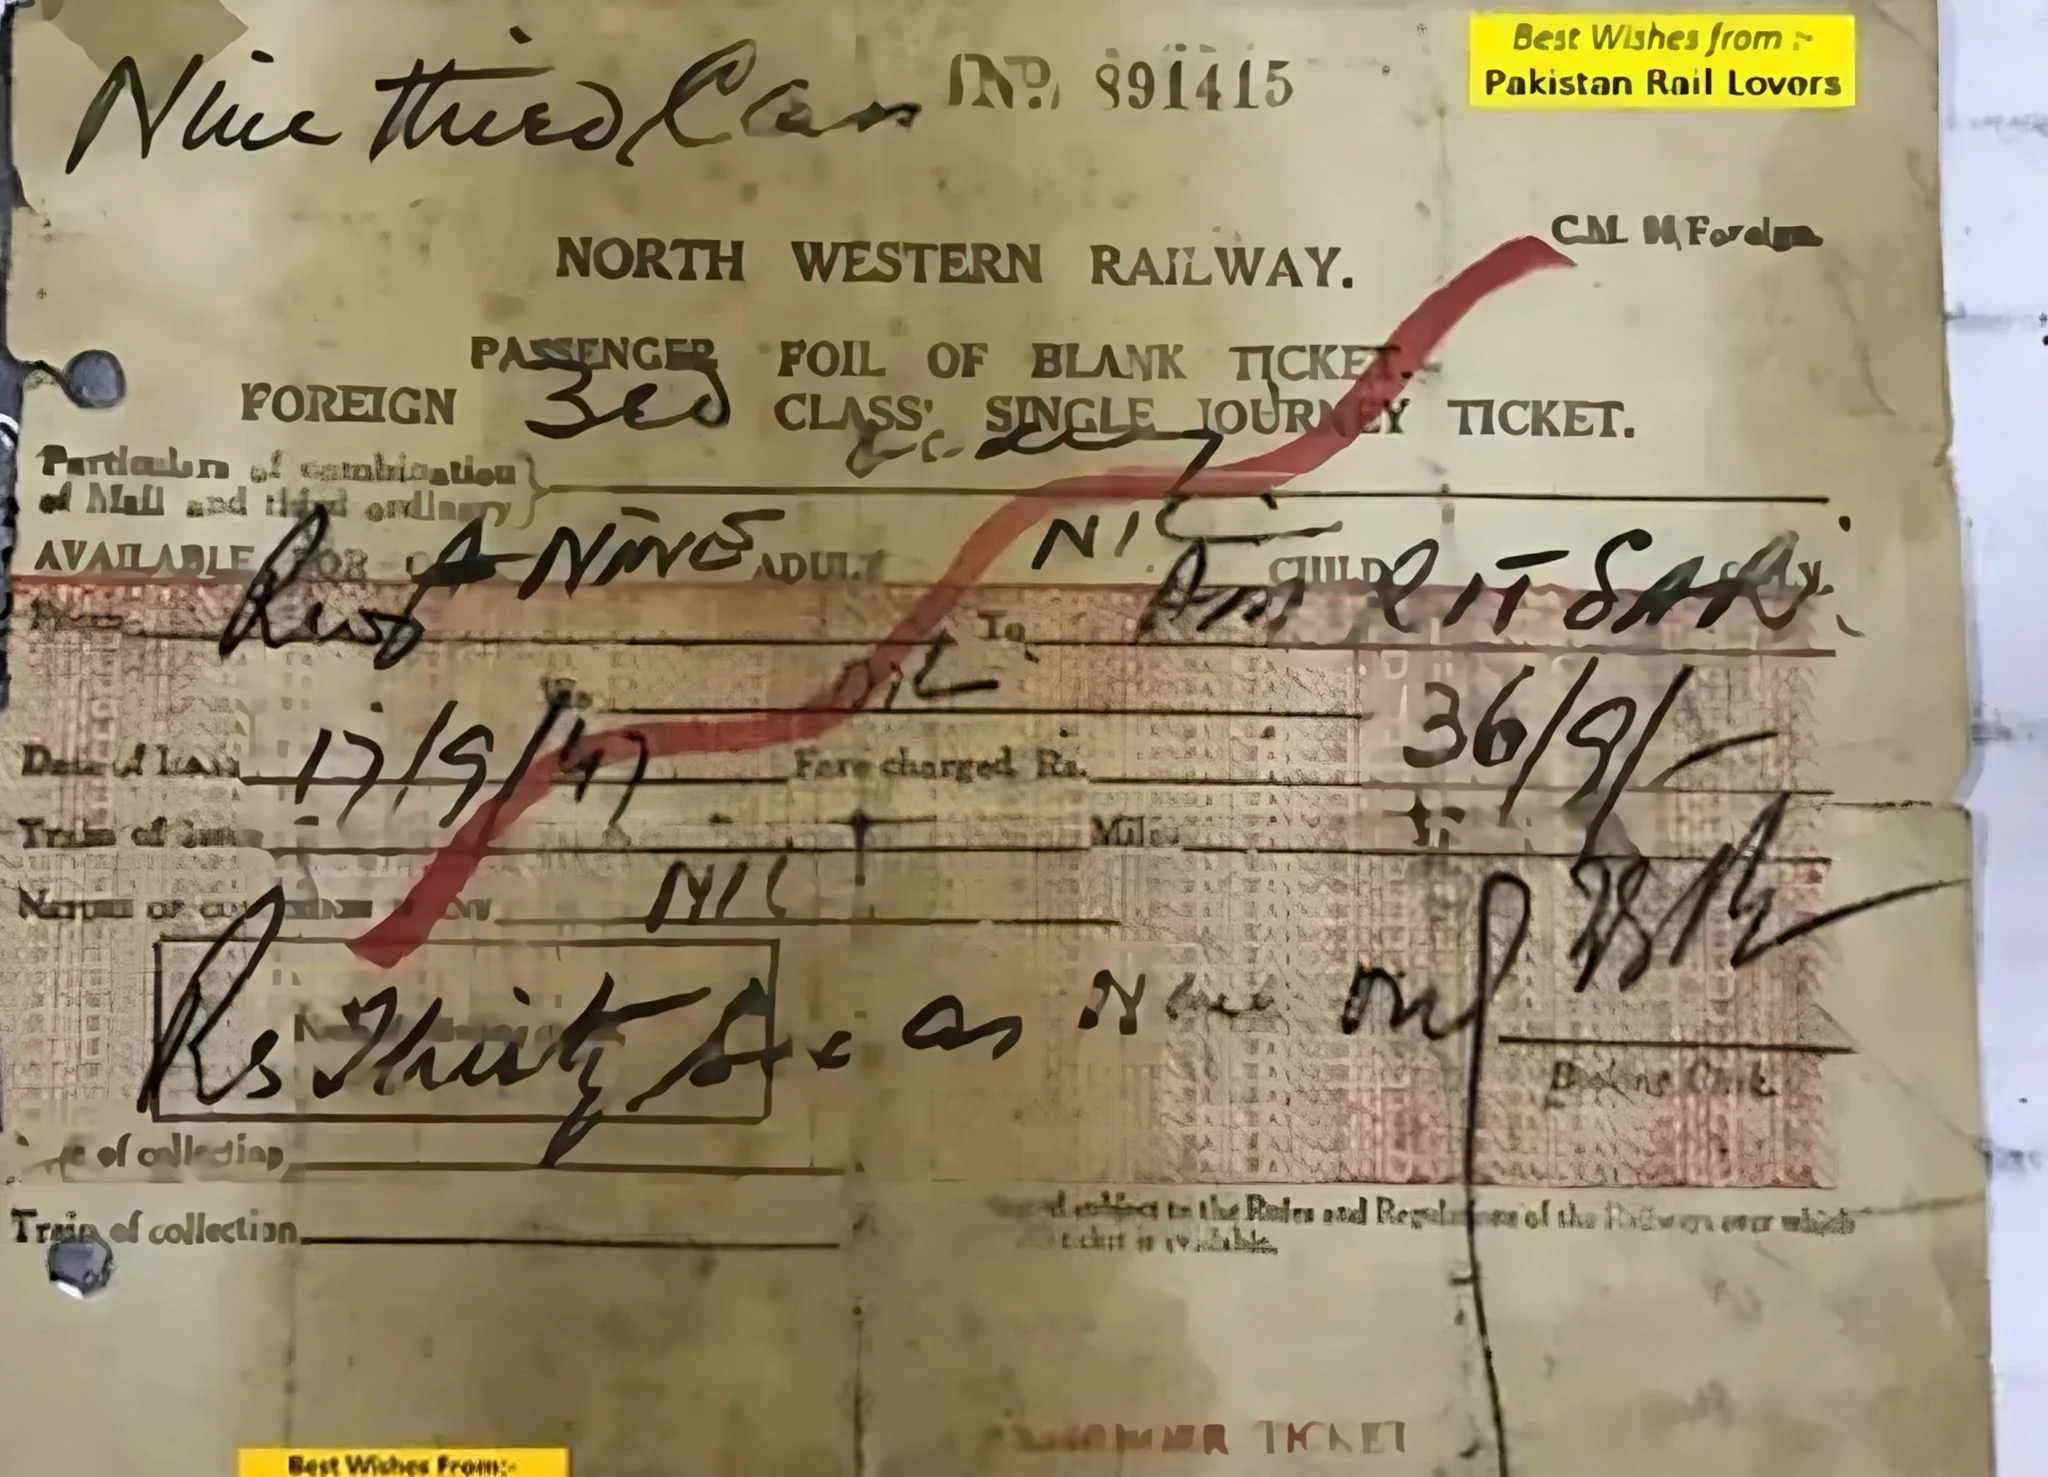 Nine third
No. 891415
Best Wishes from :-
Pakistan Rail Lovers
NORTH WESTERN RAILWAY.
PASSENGER FOIL OF BLANK TICKET.
FOREIGN 3rd CLASS SINGLE JOURNEY TICKET.
Particulars of combination
of Mail and third ordinary
AVAILABLE FOR NINE ADULT NIL CHILD ONLY.
To AMRITSAR
Via NIL
Date of issue 17/9/47 Fare charged Rs. 36/9/-
Train of Miles
NIL
Rs Thirty Six as Nine only
Booking Clerk
of collection
Train of collection
subject to the Rules and Regulations of the Railways over which
ticket is available.
TICKET
Best Wishes From:-